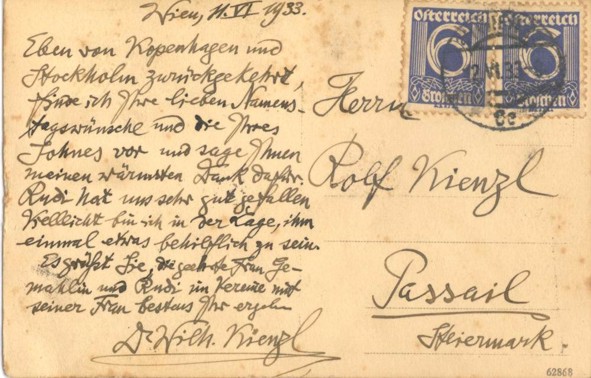 Wien, 11. VI 1933.
Eben von Kopenhagen und
Stockholm zurückgekehrt,
finde ich Ihre lieben Namens-
tagswünsche und die Ihres
Sohnes vor und sage Ihnen
meinen wärmsten Dank dafür.
Rudi hat uns sehr gut gefallen
Vielleicht bin ich in der Lage, ihm
einmal etwas behilflich zu sein.
Es grüßt Sie, die geehrte Frau Ge-
mahlin und Rudi im Vereine mit
seiner Frau bestens Ihr ergeb.
Dr Wilh. Kienzl
Österreich Österreich
6 6
Groschen Groschen
Herrn
Rolf Kienzl
Passail
Steiermark.
62868